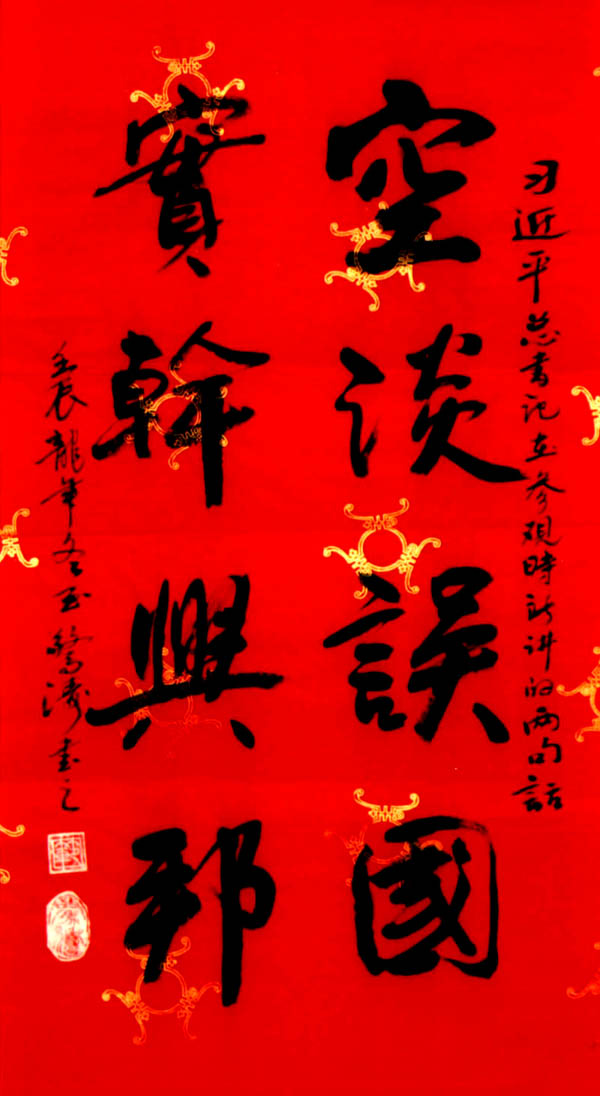 习近平总书记在参观時所讲的两句話
空谈誤國
實幹興邦
壬辰龍年冬玉驚涛书之